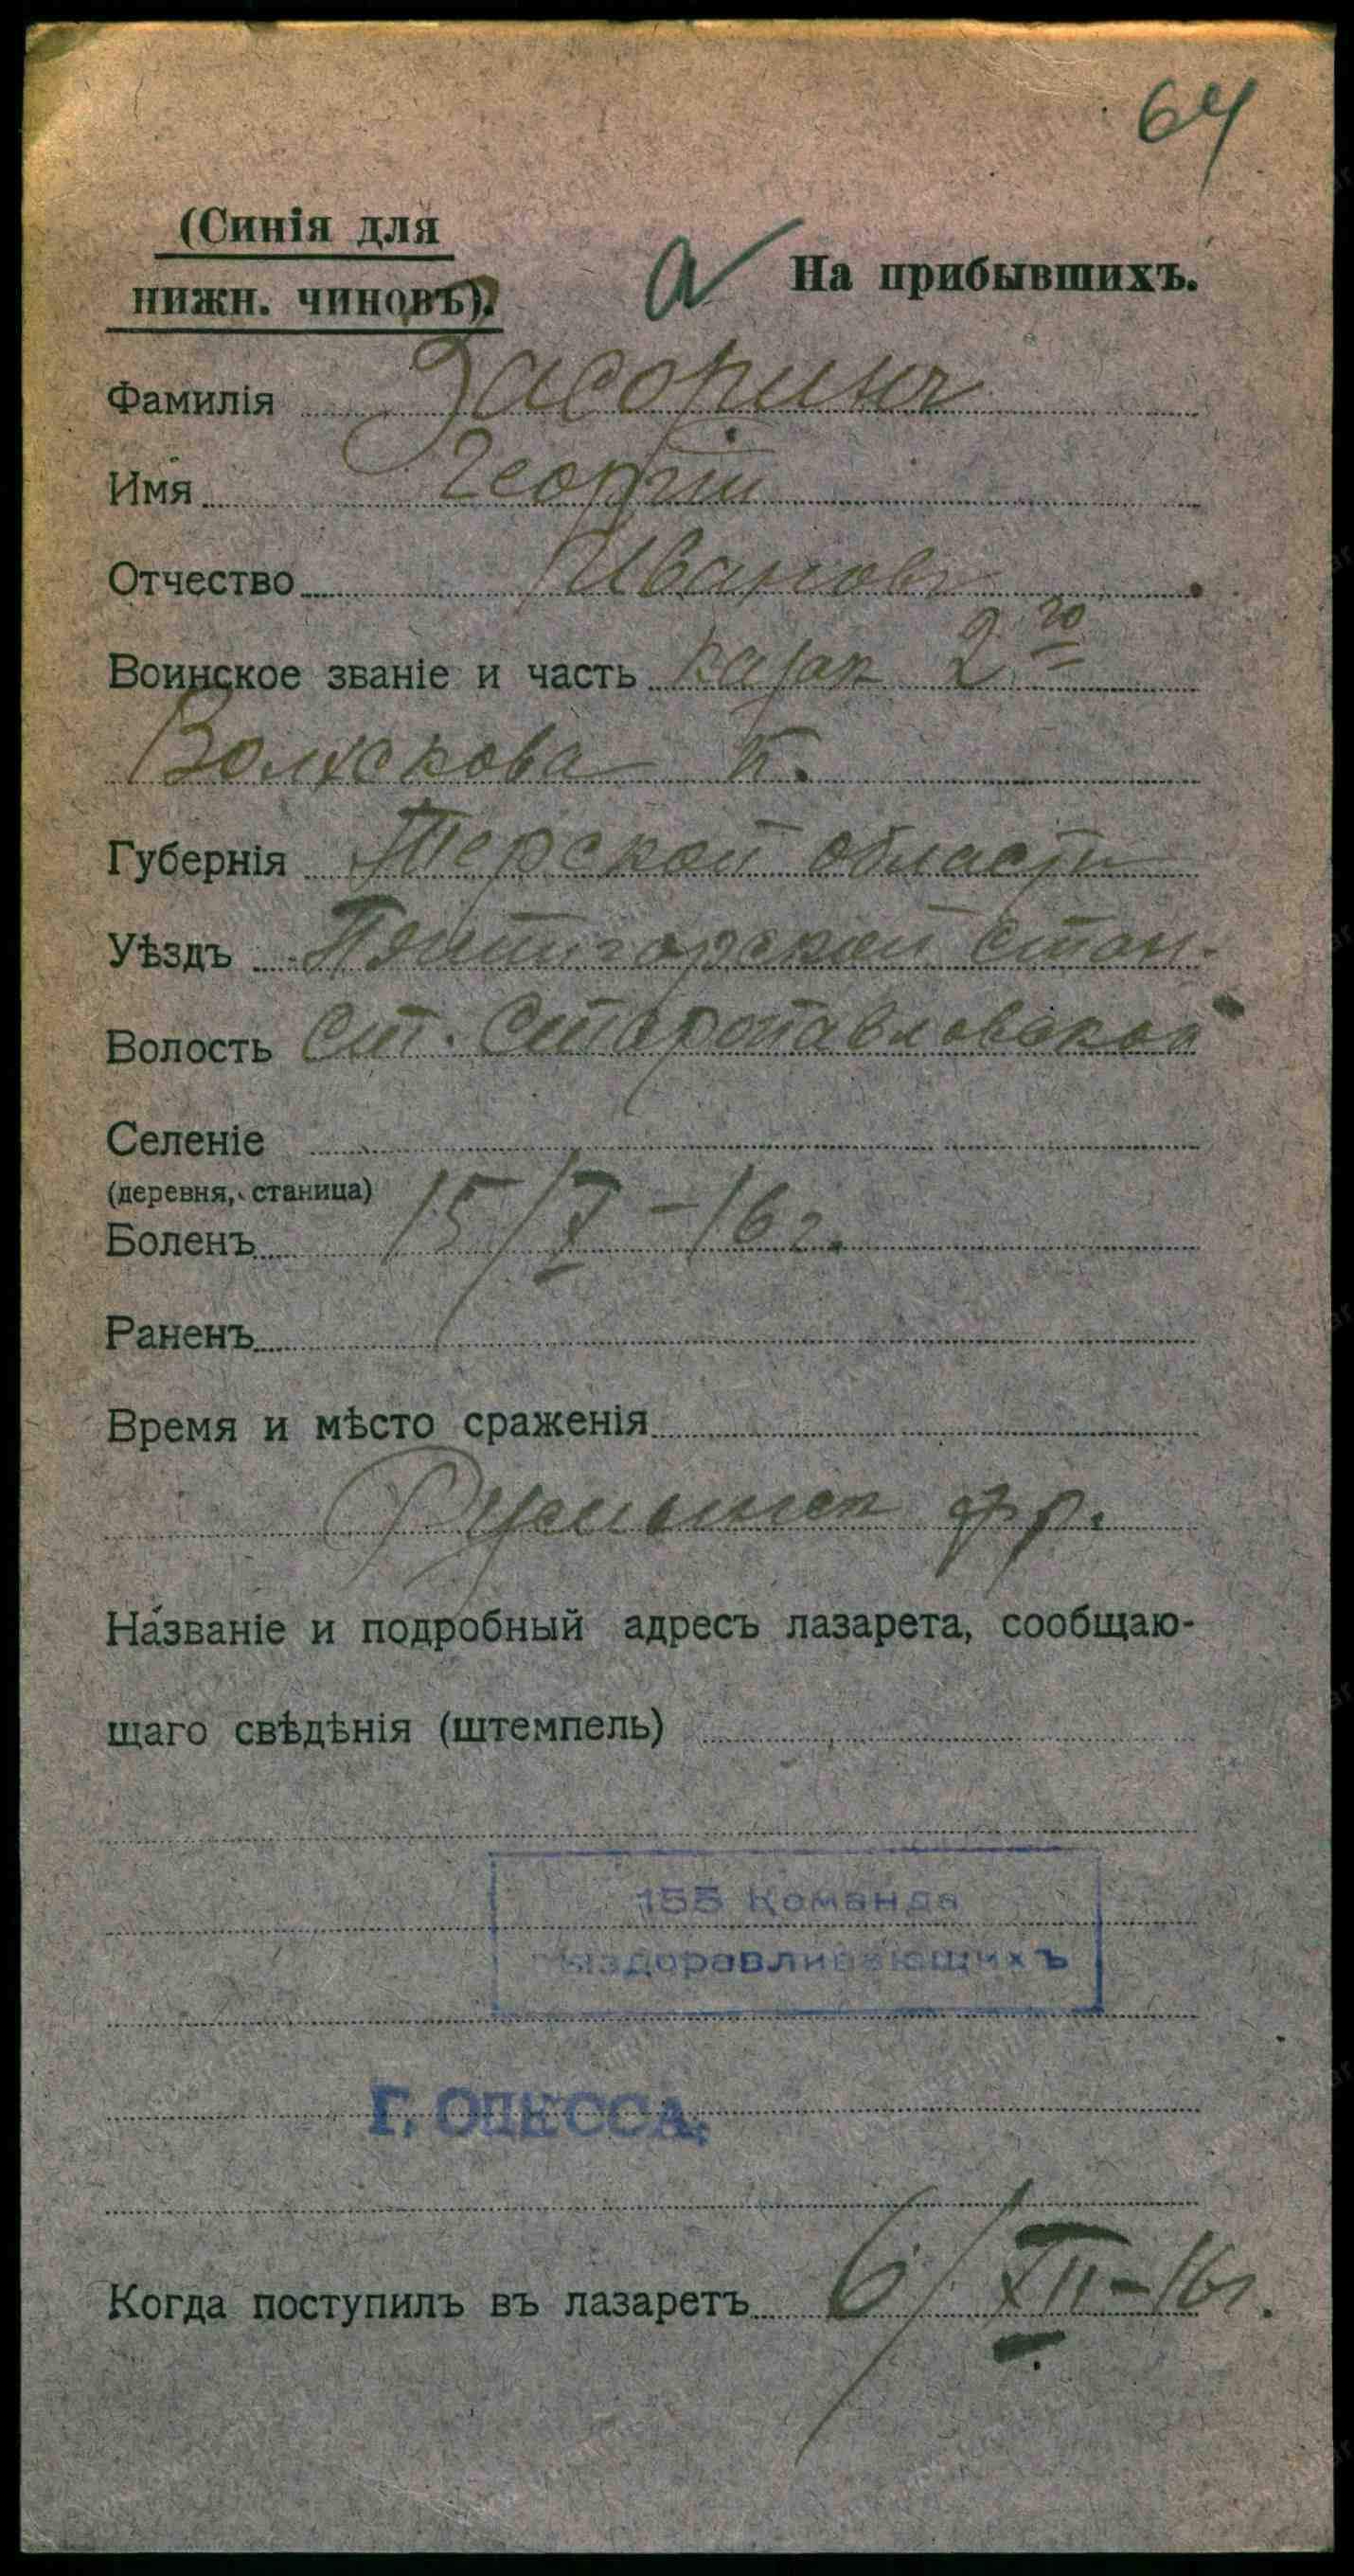 64
(Синія для
нижн. чиновъ).
а На прибывшихъ.
Фамилія Засоринъ
Имя Георгій
Отчество Ивановъ
Воинское званіе и часть казак 2го
Волжскова п.
Губернія Терской области
Уѣздъ Пятигорской
Волость ст. Старопавловской
Селеніе
(деревня, станица)
Боленъ 15/X-16г.
Раненъ
Время и мѣсто сраженія
фр.
Названіе и подробный адресъ лазарета, сообщаю-
щаго свѣдѣнія (штемпель)
155 Команда
выздоравливающихъ
Г. ОДЕССА.
Когда поступилъ въ лазаретъ 6/XII-16г.